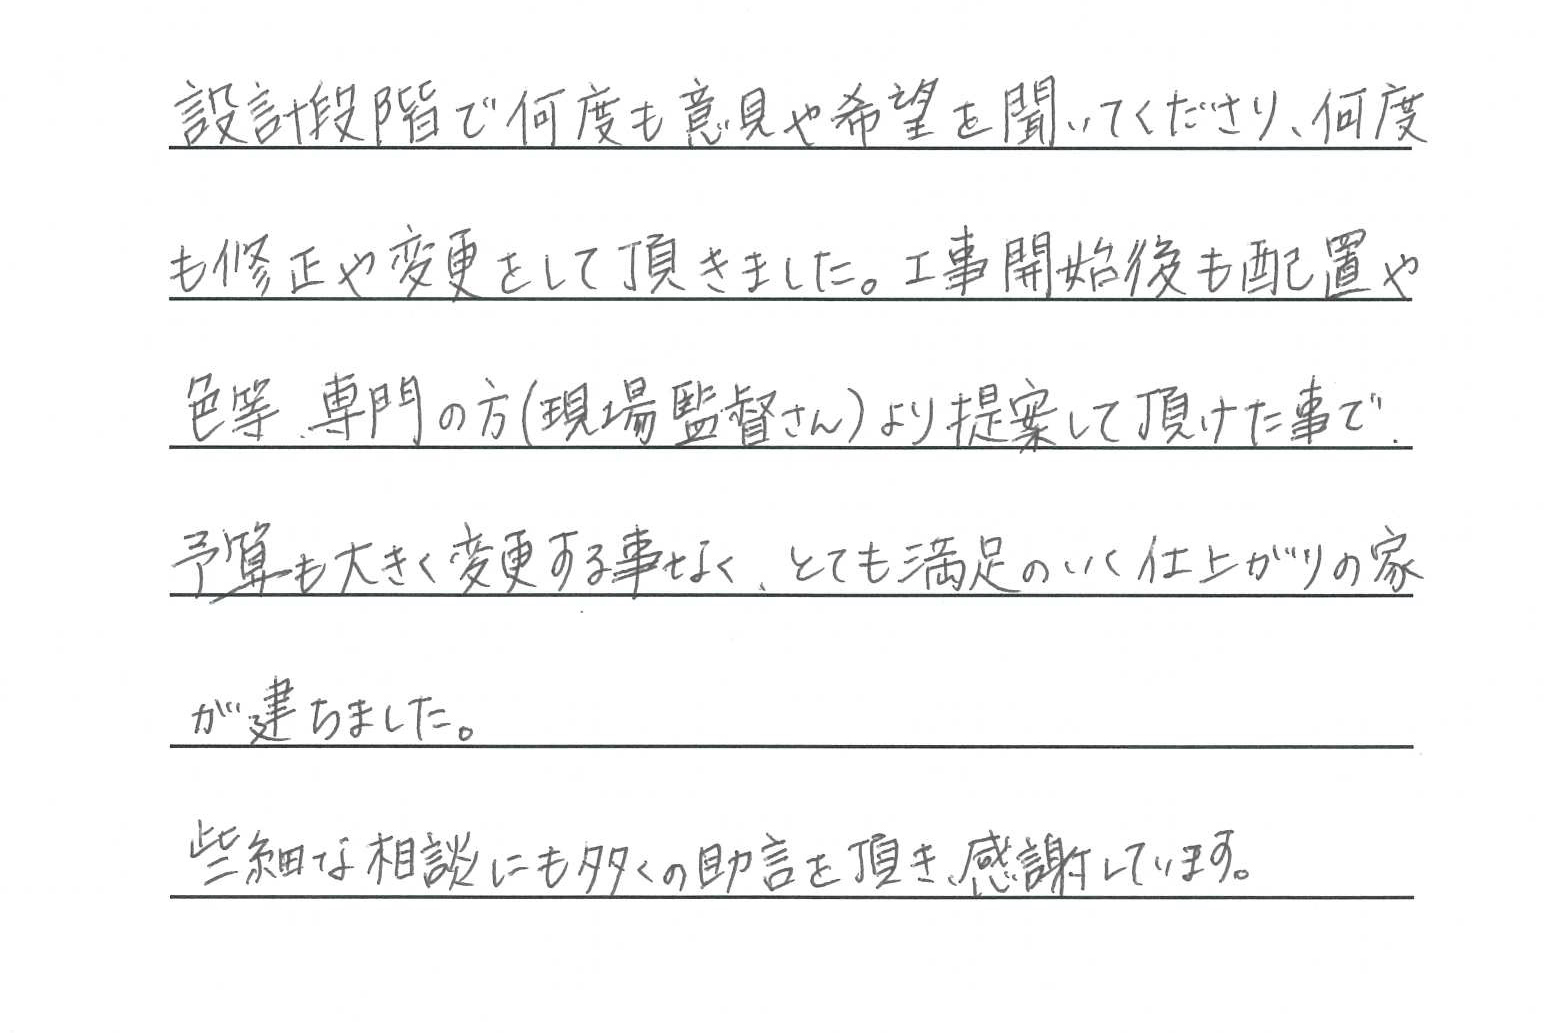 設計段階で何度も意見や希望を聞いてくださり、何度
も修正や変更をして頂きました。工事開始後も配置や
色等、専門の方(現場監督さん)より提案して頂けた事で、
予算も大きく変更する事なく、とても満足のいく仕上がりの家
が建ちました。
些細な相談にも多くの助言を頂き、感謝しています。